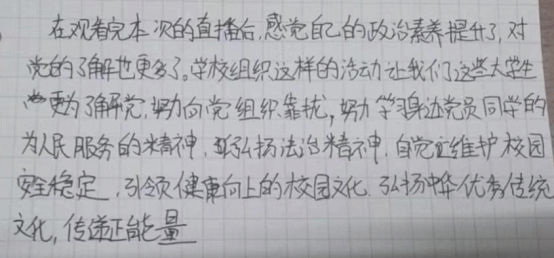 在观看完本次的直播后,感觉自己的政治素养提升了,对
党的了解也更多了。学校组织这样的活动让我们这些大学生
更为了解党,努力向党组织靠拢,努力学习身边党员同学的
为人民服务的精神,弘扬法治精神,自觉维护校园
安全稳定,引领健康向上的校园文化,弘扬中华优秀传统
文化,传递正能量